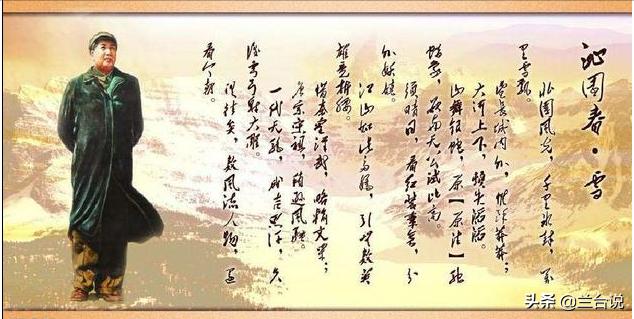 沁园春·雪
北国风光，千里冰封，万
里雪飘。
望长城内外，惟余莽莽；
大河上下，顿失滔滔。
山舞银蛇，原[原注]驰
蜡象，欲与天公试比高。
须晴日，看红装素裹，分
外妖娆。
江山如此多娇，引无数英
雄竞折腰。
惜秦皇汉武，略输文采；
唐宗宋祖，稍逊风骚。
一代天骄，成吉思汗，只
识弯弓射大雕。
俱往矣，数风流人物，还
看今朝。
头条 @兰台说